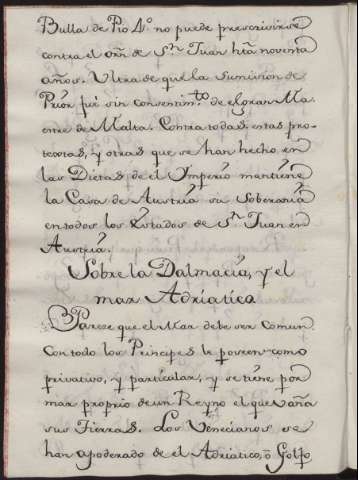 Bulla de Pio 4º no puede prescrivirse
contra el orñ de Sñ Juan hta noventa
años. Ultra de que la sumision de
Prior fué sin consentimto de el gran Ma-
estre de Malta. Contra todas estas pro-
textas, y otras que se han hecho en
las Dietas de el Imperio mantiene
la Casa de Austria su Soberania
en todos los Estados de Sñ Juan en
Austria.
Sobre la Dalmacia, y el
mar Adriatico
Parece que el Mar debe ser comun.
Con todo los Principes le poseen como
privativo, y particular, y se tiene por
mar proprio de un Reyno el que vaña
sus Tierras. Los Venecianos se
han apoderado de el Adriatico, ò Golfo